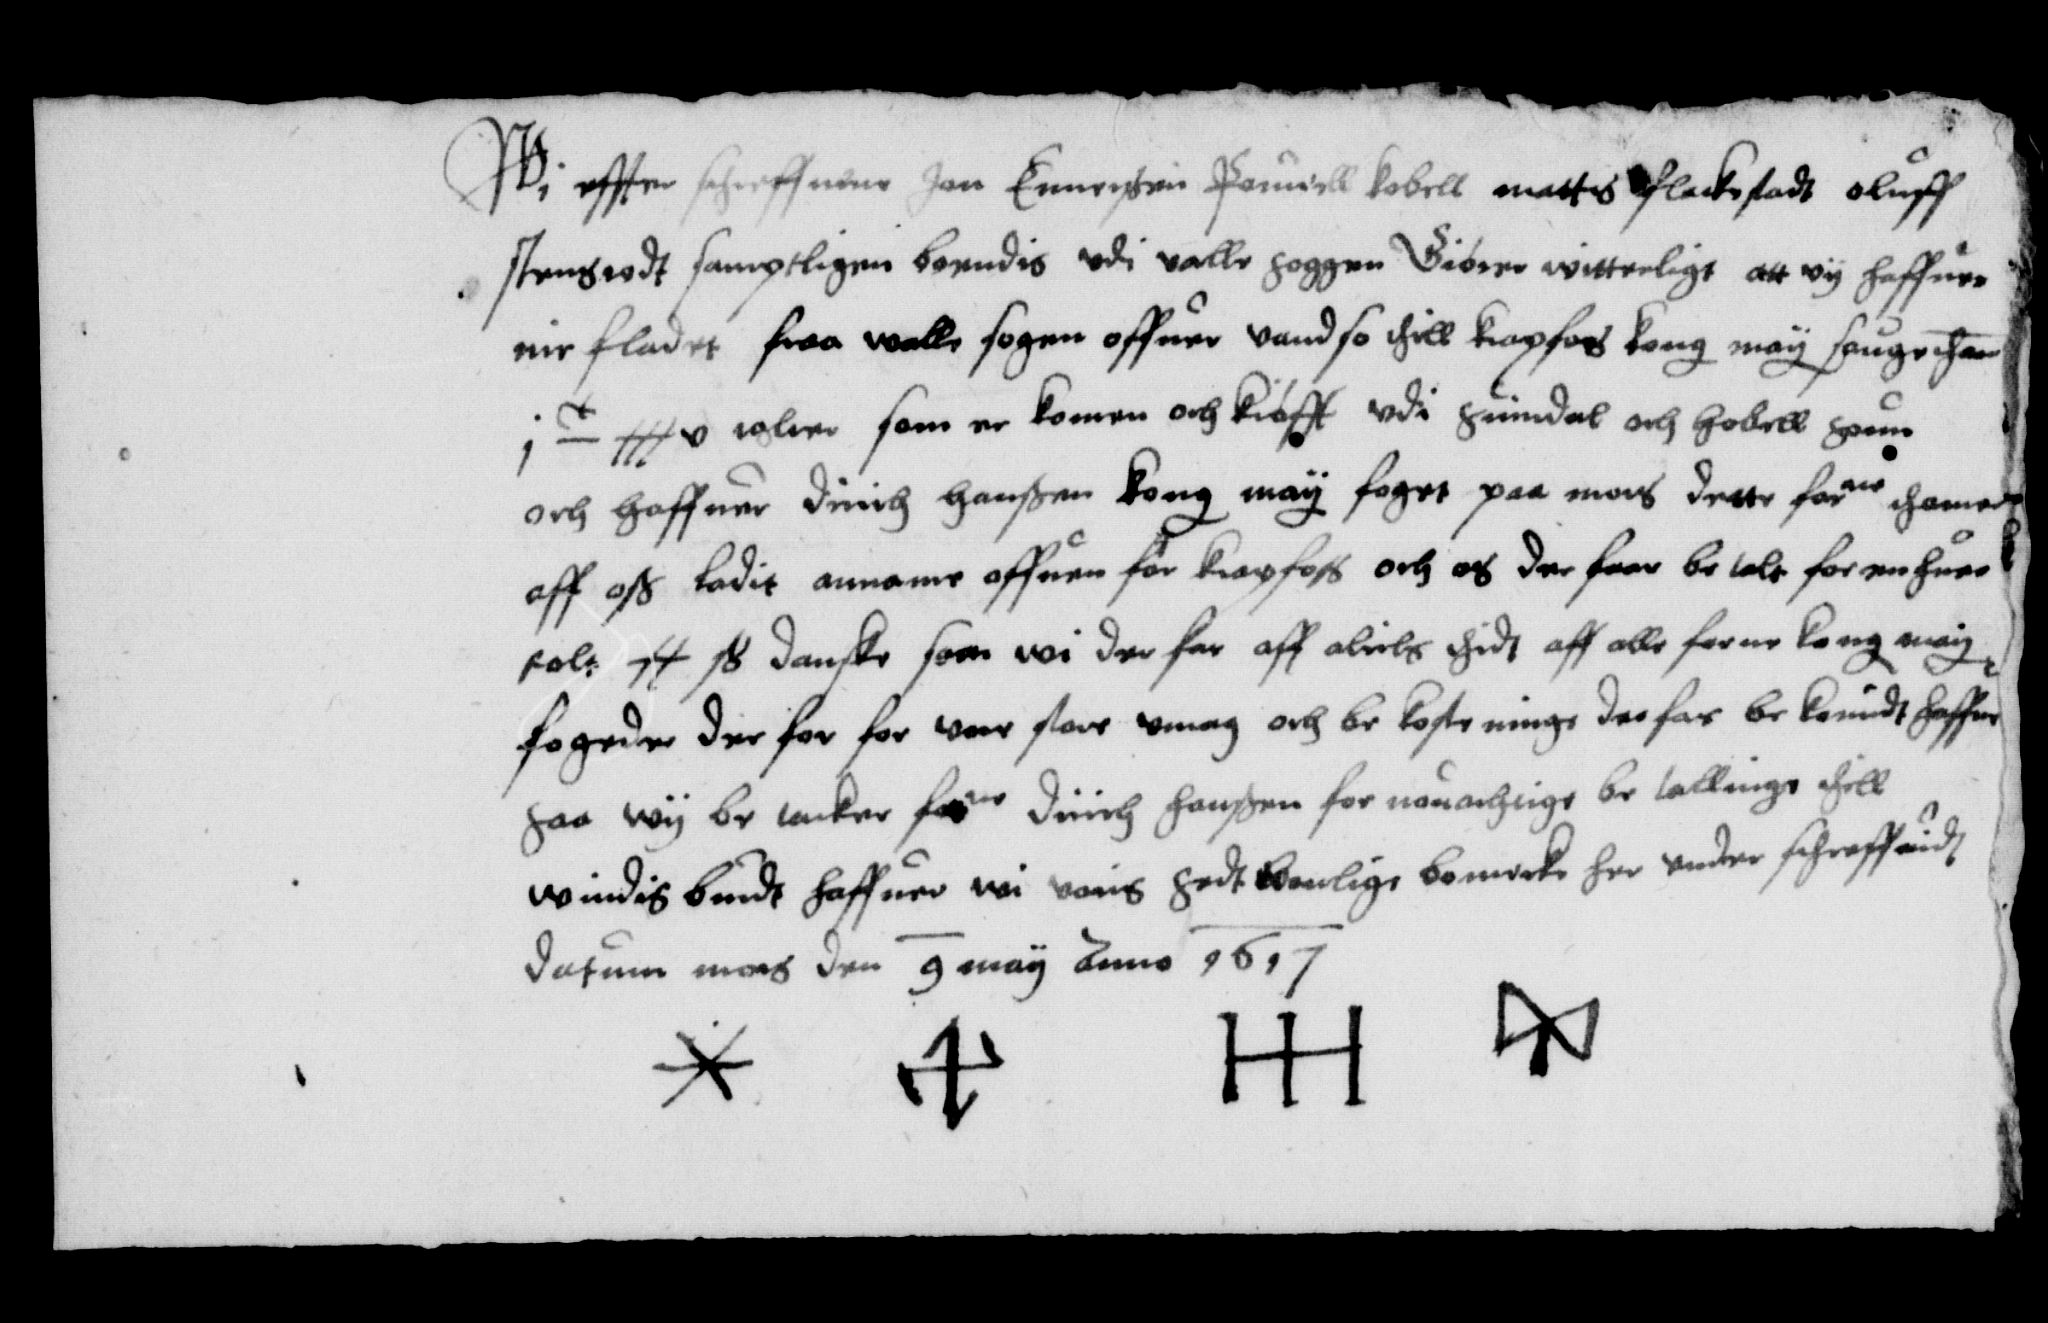 Wi effter schreffnene Jon Ennersen Pouiell kobell mattis flackestadt oluff
stensrødt samptligen boendis vdi valle soggen Giører witterligt att vij haffuer
nir fladet fraa walle sogen offuer vandsø thill krapfos kong maÿ sauge thom
j c xxx v tylter som er komen och kiøfft vdi suindal och hobell soun
och haffuer dirich hanßen kong maÿ foget paa mos dette for ne thomer
aff oß ladit anname offuen for krapfoß och os der foor be talt for en huer
tolt xx ß danske som wi der for aff alitils thidt aff alle forne kong maÿ
fogeder der for for vor store vmag och be kostninge der for be komidt haffuer
saa wij be tacker for ne dirich hanßen for nouachtige be tallinge thill
windis burdt haffuer wi voris sedt vanlige bomercke her vnder schreffuidt
datum mos den 9 maÿ Anno 1617